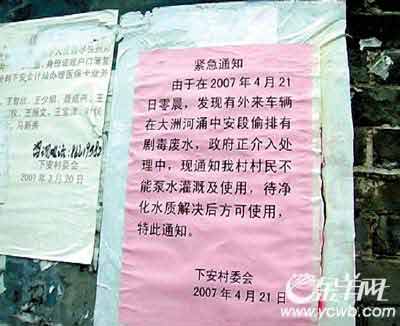 身份证或户口簿复
到下安会计站办理医保卡业务
下安村委会
2007年3月20日
紧急通知
由于在2007年4月21
日零晨，发现有外来车辆
在大洲河涌中安段偷排有
剧毒废水，政府正介入处
理中，现通知我村村民不
能泵水灌溉及使用，待净
化水质解决后方可使用，
特此通知。
下安村委会
2007年4月21日
金羊网
www.ycwb.com